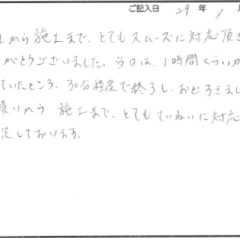 ご記入日 29 年 1
から施工まで、とてもスムーズに対応頂き
がとうございました。今日は、1時間くらいか
ていたところ、30分程度で終了し、おどろきまし
扱いから 施工まで、とても ていねいに対応
足しております。